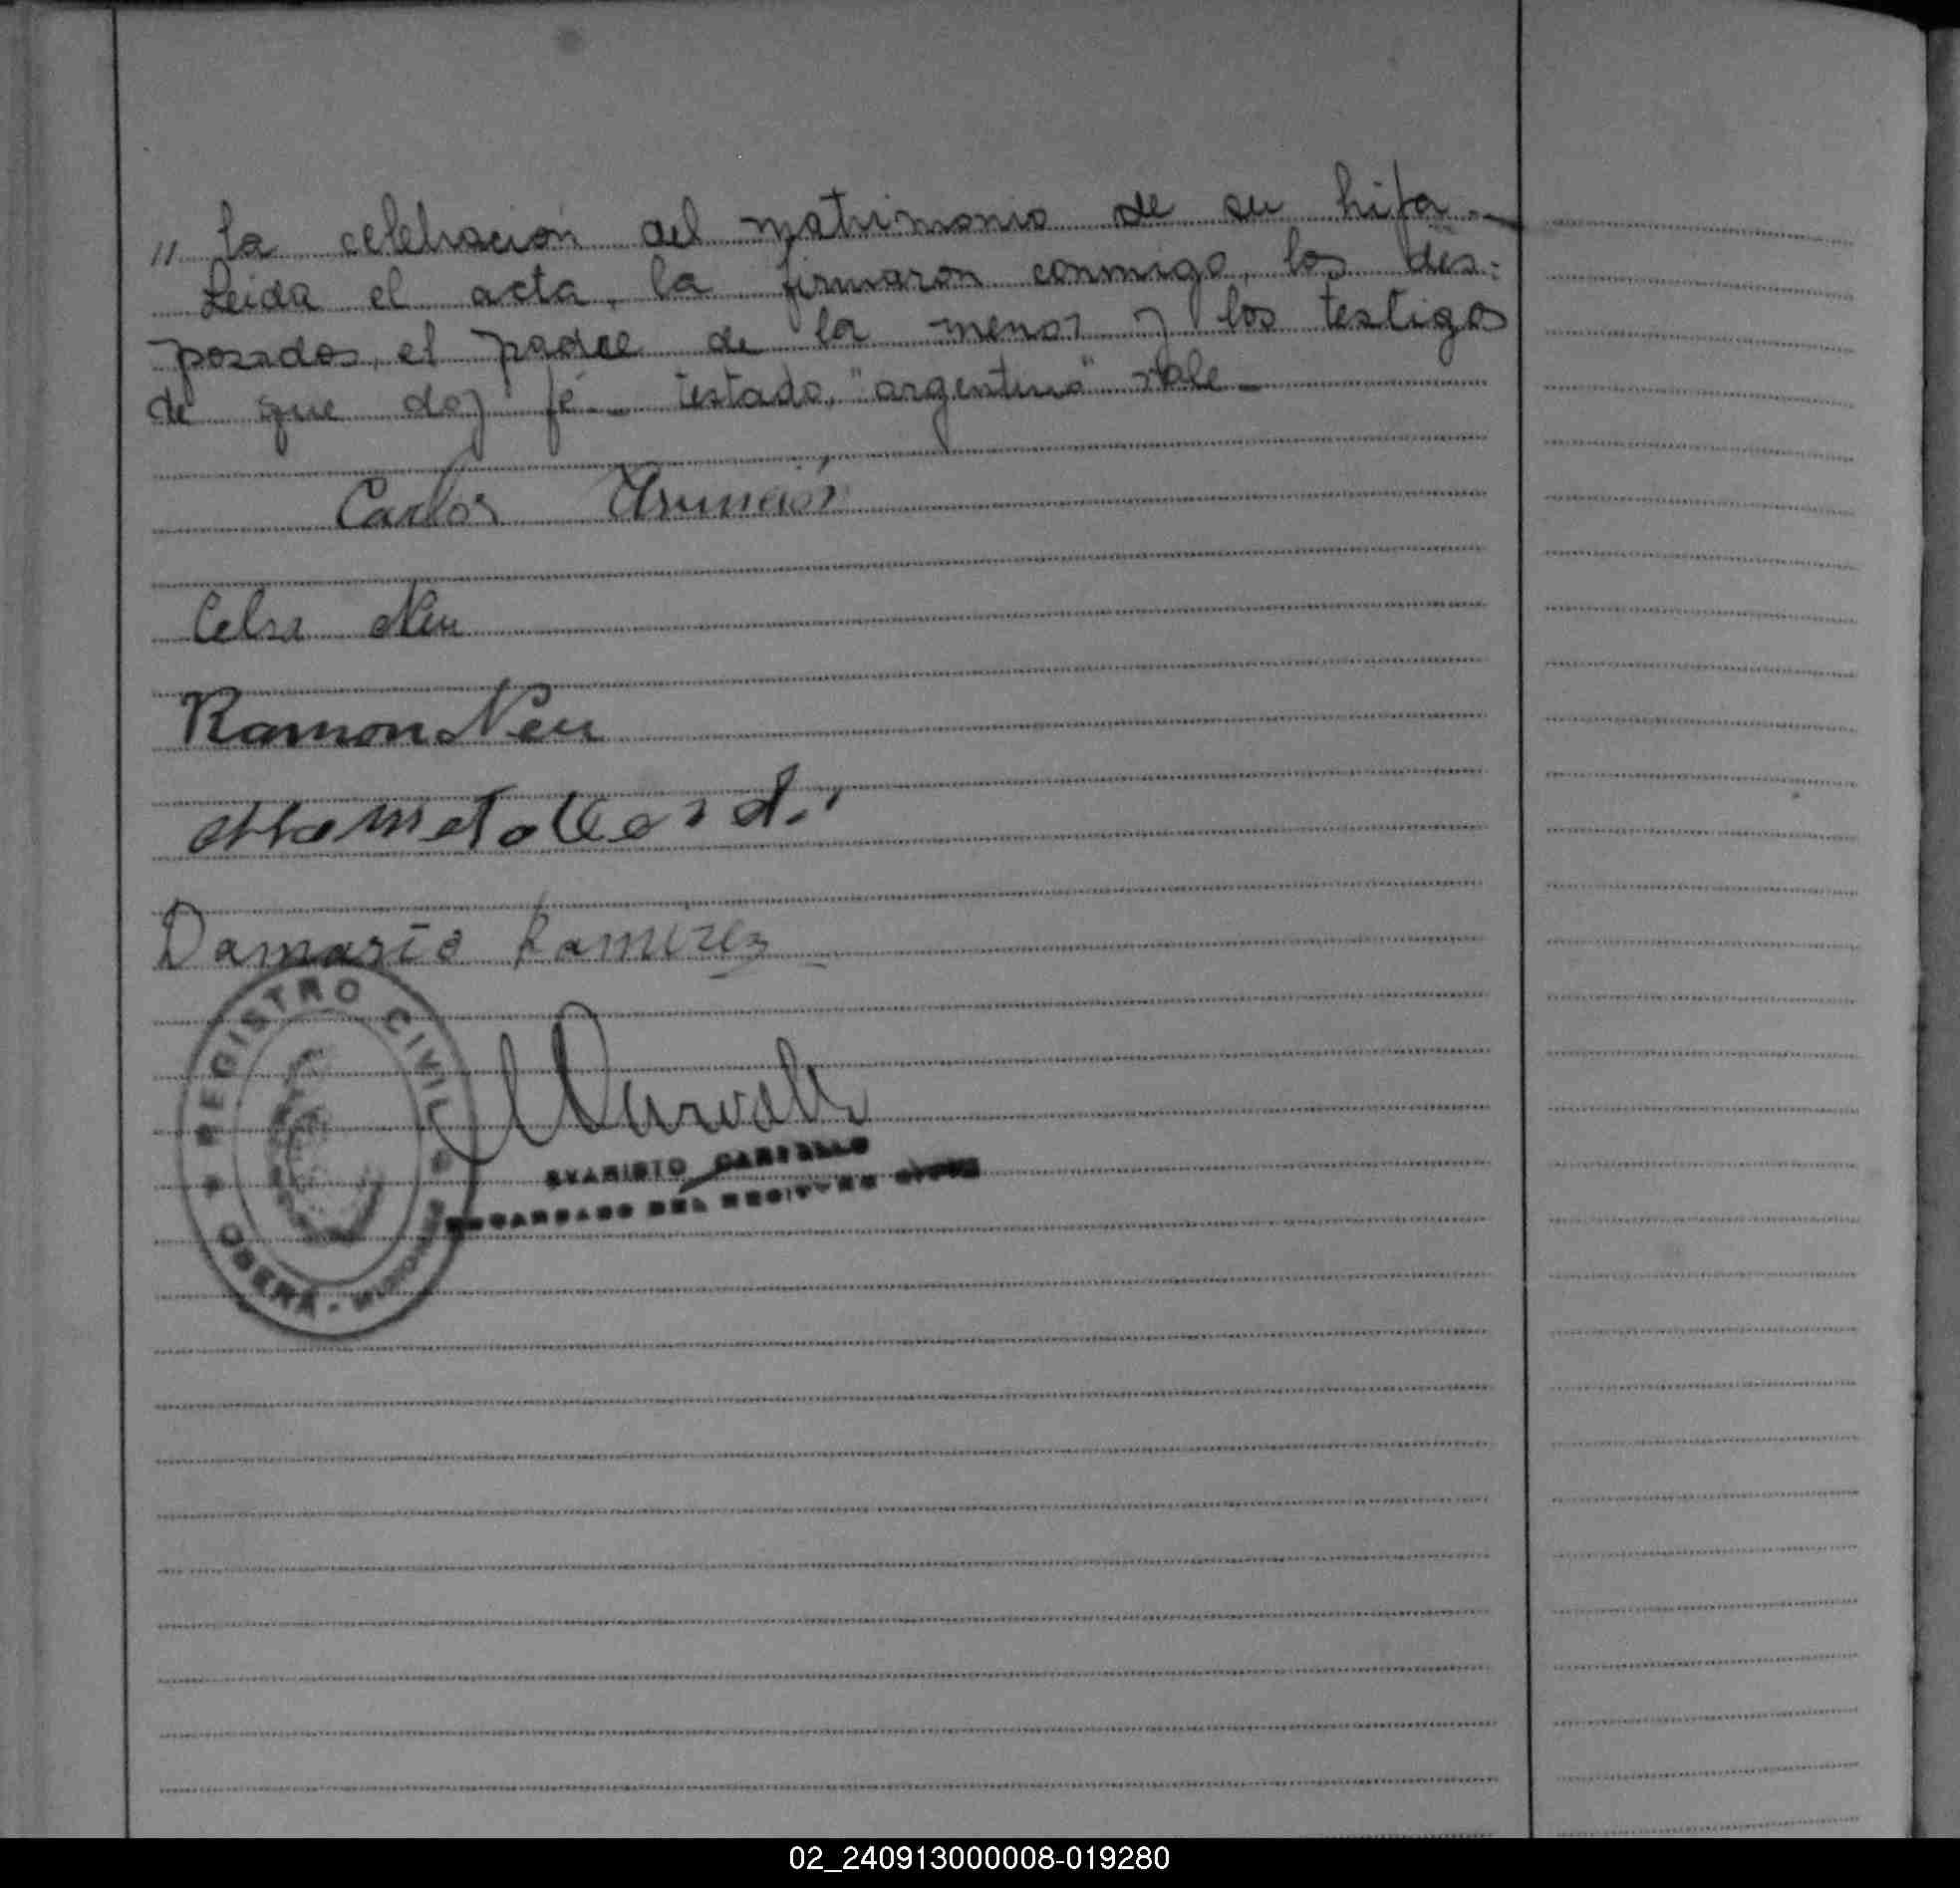 " la celebración del matrimonio de su hija.-
Leida el acta, la firmaron conmigo, los des-
posados, el padre de la menor y los testigos
de que doy fé.- Testado, "argentino" vale-
Carlos Asunción
Celsa Neu
Ramon Neu
Damasio Ramirez
REGISTRO CIVIL
OBERÁ - MISIONES
EVARISTO
ENCARGADO DEL REGISTRO CIVIL
02_240913000008-019280